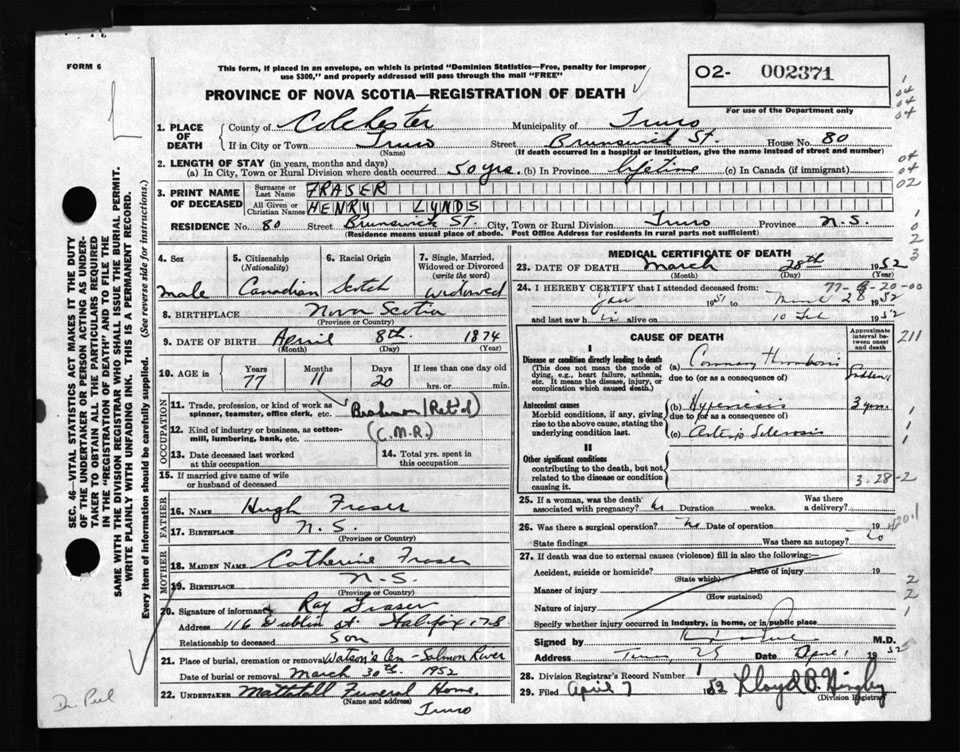 FORM 6
This form, if placed in an envelope, on which is printed "Dominion Statistics—Free, penalty for improper
use $300," and properly addressed will pass through the mail "FREE"
O2- 002371
For use of the Department only
PROVINCE OF NOVA SCOTIA—REGISTRATION OF DEATH
SEC. 46 VITAL STATISTICS ACT MAKES IT THE DUTY
OF THE UNDERTAKER OR PERSON ACTING AS UNDER-
TAKER TO OBTAIN ALL THE PARTICULARS REQUIRED
IN THE "REGISTRATION OF DEATH" AND TO FILE THE
SAME WITH THE DIVISION REGISTRAR WHO SHALL ISSUE THE BURIAL PERMIT.
WRITE PLAINLY WITH UNFADING INK. THIS IS A PERMANENT RECORD.
Every item of information should be carefully supplied. (See reverse side for instructions.)
1. PLACE OF DEATH County of Colchester Municipality of Truro
If in City or Town Truro Street Brunswick St. House No. 80
(Name) (If death occurred in a hospital or institution, give the name instead of street and number)
2. LENGTH OF STAY (in years, months and days)
(a) In City, Town or Rural Division where death occurred 50 yrs. (b) In Province lifetime (c) In Canada (if immigrant)
3. PRINT NAME OF DECEASED Surname or Last Name FRASER
All Given or Christian Names HENRY LYNDS
RESIDENCE No. 80 Street Brunswick St. City, Town or Rural Division Truro Province N.S.
(Residence means usual place of abode. Post Office Address for residents in rural parts not sufficient)
4. Sex Male
5. Citizenship (Nationality) Canadian
6. Racial Origin Scotch
7. Single, Married, Widowed or Divorced (write the word) Widowed
8. BIRTHPLACE Nova Scotia
(Province or Country)
9. DATE OF BIRTH April 8th. 1874
(Month) (Day) (Year)
10. AGE in Years 77 Months 11 Days 20 If less than one day old
hrs. or min.
OCCUPATION
11. Trade, profession, or kind of work as spinner, teamster, office clerk, etc. (Ret'd)
12. Kind of industry or business, as cotton-mill, lumbering, bank, etc. (C.N.R.)
13. Date deceased last worked at this occupation
14. Total yrs. spent in this occupation
15. If married give name of wife or husband of deceased
FATHER
16. Name Hugh Fraser
17. Birthplace N.S.
(Province or Country)
MOTHER
18. MAIDEN NAME Catherine Fraser
19. BIRTHPLACE N.S.
(Province or Country)
20. Signature of informant Ray Fraser
Address 116 Dublin St. Halifax N.S.
Relationship to deceased Son
21. Place of burial, cremation or removal Watson's Cem - Salmon River
Date of burial or removal March 30th. 1952
22. UNDERTAKER Mattatall Funeral Home,
(Name and address)
Truro
MEDICAL CERTIFICATE OF DEATH
23. DATE OF DEATH March 28th 1952
24. I HEREBY CERTIFY that I attended deceased from: 77-
Jan 1951 to 28 1952
and last saw h alive on 10 Feb 1952
CAUSE OF DEATH
Approximate interval between onset and death
I
Disease or condition directly leading to death
(This does not mean the mode of dying, e.g., heart failure, asthenia, etc. It means the disease, injury, or complication which caused death.)
(a) Coronary Thrombosis Sudden
due to (or as a consequence of)
Antecedent causes
Morbid conditions, if any, giving rise to the above cause, stating the underlying condition last.
(b) 3 yrs.
due to (or as a consequence of)
(c) Sclerosis
II
Other significant conditions
contributing to the death, but not related to the disease or condition causing it.
3-28-2
211
25. If a woman, was the death associated with pregnancy? No Duration weeks. Was there a delivery?
26. Was there a surgical operation? No Date of operation 19
State findings Was there an autopsy? No
27. If death was due to external causes (violence) fill in also the following:
Accident, suicide or homicide? Date of injury 19
(State which)
Manner of injury
(How sustained)
Nature of injury
Specify whether injury occurred in industry, in home, or in public place
Signed by M.D.
Address Truro, NS Date April 1 1952
28. Division Registrar's Record Number
29. Filed April 7 1952 Lloyd B.
(Division Registrar)
Dr Peel